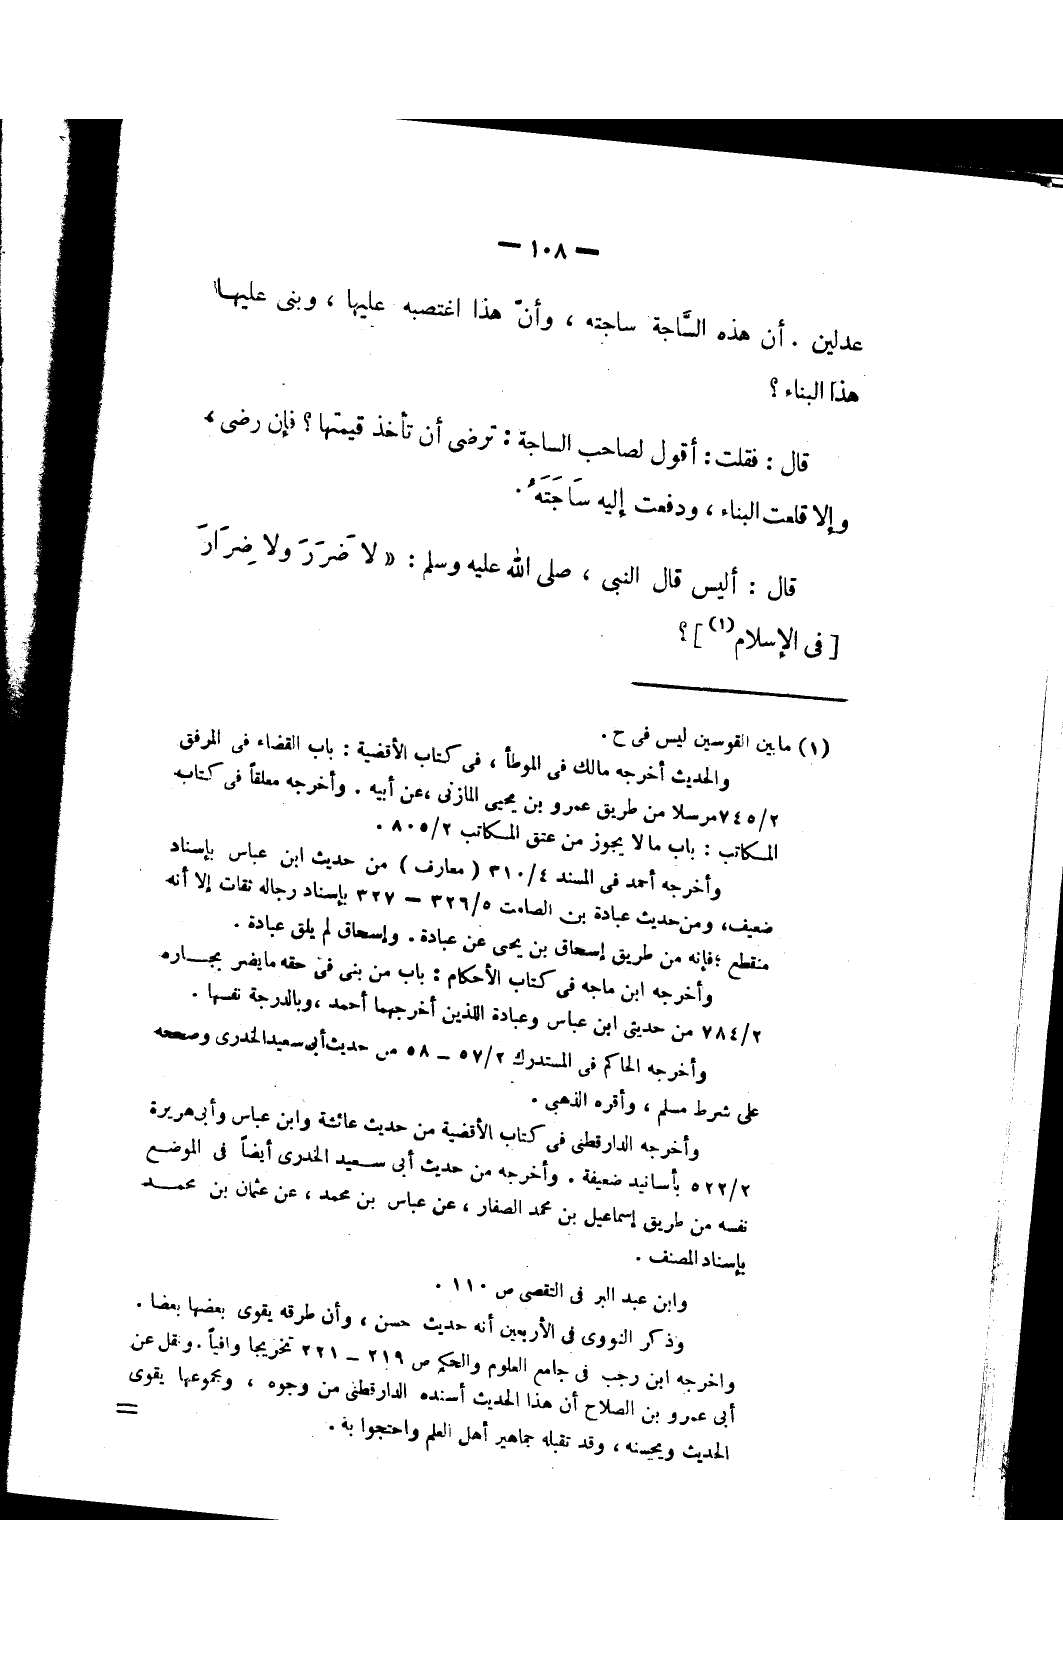 — ١٠٨ —
عدلين . أن هذه السَّاجة ساجته ، وأنّ هذا اغتصبه عليها ، وبنى عليها
هذا البناء ؟
قال : فقلت : أقول لصاحب الساجة : ترضى أن تأخذ قيمتها ؟ فإن رضى ،
وإلا قلعت البناء ، ودفعت إليه سَاجَتَهُ .
قال : أليس قال النبى ، صلى الله عليه وسلم : « لا ضَرَرَ ولا ضِرَارَ
[ فى الإسلام(١) ] ؟
(١) مابين القوسين ليس فى ح .
والحديث أخرجه مالك فى الموطأ ، فى كتاب الأقضية : باب القضاء فى المرفق
٧٤٥/٢ مرسلا من طريق عمرو بن يحيى المازنى ، عن أبيه . وأخرجه معلقاً فى كتاب
المكاتب : باب مالا يجوز من عتق المكاتب ٨٠٥/٢ .
وأخرجه أحمد فى المسند ٣١٠/٤ ( معارف ) من حديث ابن عباس بإسناد
ضعيف، ومن حديث عبادة بن الصامت ٣٢٦/٥ — ٣٢٧ بإسناد رجاله ثقات إلا أنه
منقطع ؛ فإنه من طريق إسحاق بن يحيى عن عبادة . وإسحاق لم يلق عبادة .
وأخرجه ابن ماجه فى كتاب الأحكام : باب من بنى فى حقه مايضر بجاره
٧٨٤/٢ من حديثى ابن عباس وعبادة اللذين أخرجهما أحمد ، وبالدرجة نفسها .
وأخرجه الحاكم فى المستدرك ٥٧/٢ — ٥٨ من حديث أبى سعيد الخدرى وصححه
على شرط مسلم ، وأقره الذهبى .
وأخرجه الدارقطنى فى كتاب الأقضية من حديث عائشة وابن عباس وأبى هريرة
٥٢٢/٢ بأسانيد ضعيفة . وأخرجه من حديث أبى سعيد الخدرى أيضاً فى الموضع
نفسه من طريق إسماعيل بن محمد الصفار ، عن عباس بن محمد ، عن عثمان بن محمد
بإسناد المصنف .
وابن عبد البر فى التقصى ص ١١٠ .
وذكر النووى فى الأربعين أنه حديث حسن ، وأن طرقه يقوى بعضها بعضا .
واخرجه ابن رجب فى جامع العلوم والحكم ص ٢١٩ — ٢٢١ تخريجا وافياً . ونقل عن
أبى عمرو بن الصلاح أن هذا الحديث أسنده الدارقطنى من وجوه ، وبجموعها يقوى
الحديث ويحسنه ، وقد تقبله جماهير أهل العلم واحتجوا به .
=